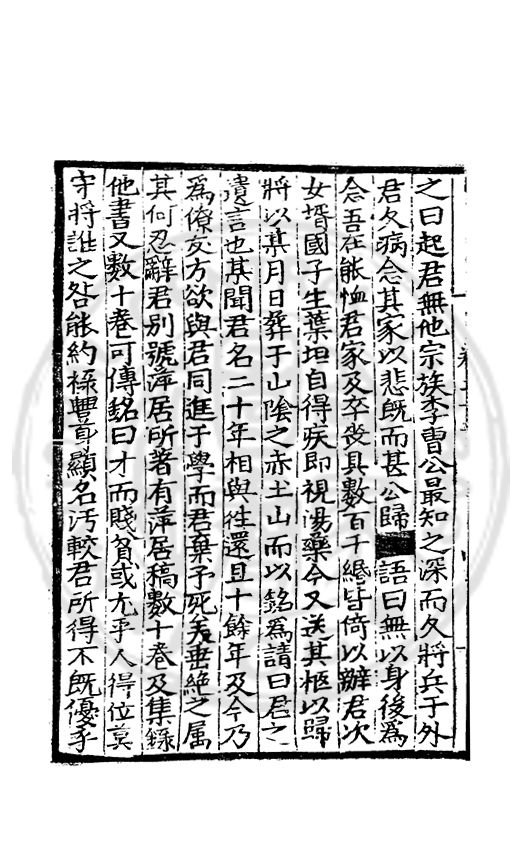 之曰起君無他宗族李曹公最知之深而久將兵于外
君久病念其家以悲既而甚公歸 語曰無以身後爲
念吾在能恤君家及卒喪具數百千緡皆倚以辦君次
女壻國子生葉坦自得疾即視湯藥今又送其柩以歸
將以某月日葬于山陰之赤土山而以銘爲請曰君之
遺言也某聞君名二十年相與徃還且十餘年及今乃
爲僚友方欲與君同進于學而君棄予死矣垂絶之屬
其何忍辭君别號萍居所著有萍居稿數十巻及集錄
他書又數十巻可傳銘曰才而賤貧或尤乎人得位莫
守將誰之咎能約祿豐 顯名汚較君所得不既優乎